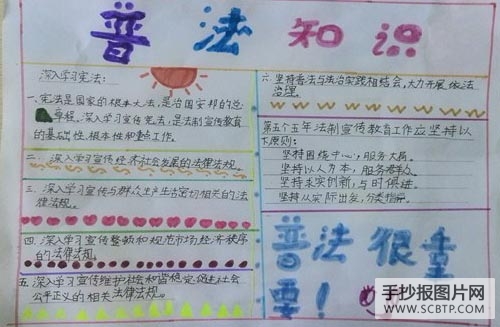 普法知识
深入学习宪法:
一、宪法是国家的根本大法,是治国安邦的总
章程。深入学习宣传宪法,是法制宣传教育
的基础性、根本性和重点工作。
二、深入学习宣传经济社会发展的法律法规。
三、深入学习宣传与群众生产生活密切相关的法
律法规。
四、深入学习宣传整顿和规范市场经济秩序
的法律法规。
五、深入学习宣传维护社会和谐稳定,促进社会
公平正义的相关法律法规。
六、坚持普法与法治实践相结合,大力开展依法
治理。
第五个五年法制宣传教育工作应坚持以
下原则:
坚持围绕中心,服务大局。
坚持以人为本,服务群众。
坚持求实创新,与时俱进。
坚持从实际出发,分类指导。
普法很重
要!
手抄报图片网
WWW.SCBTP.COM